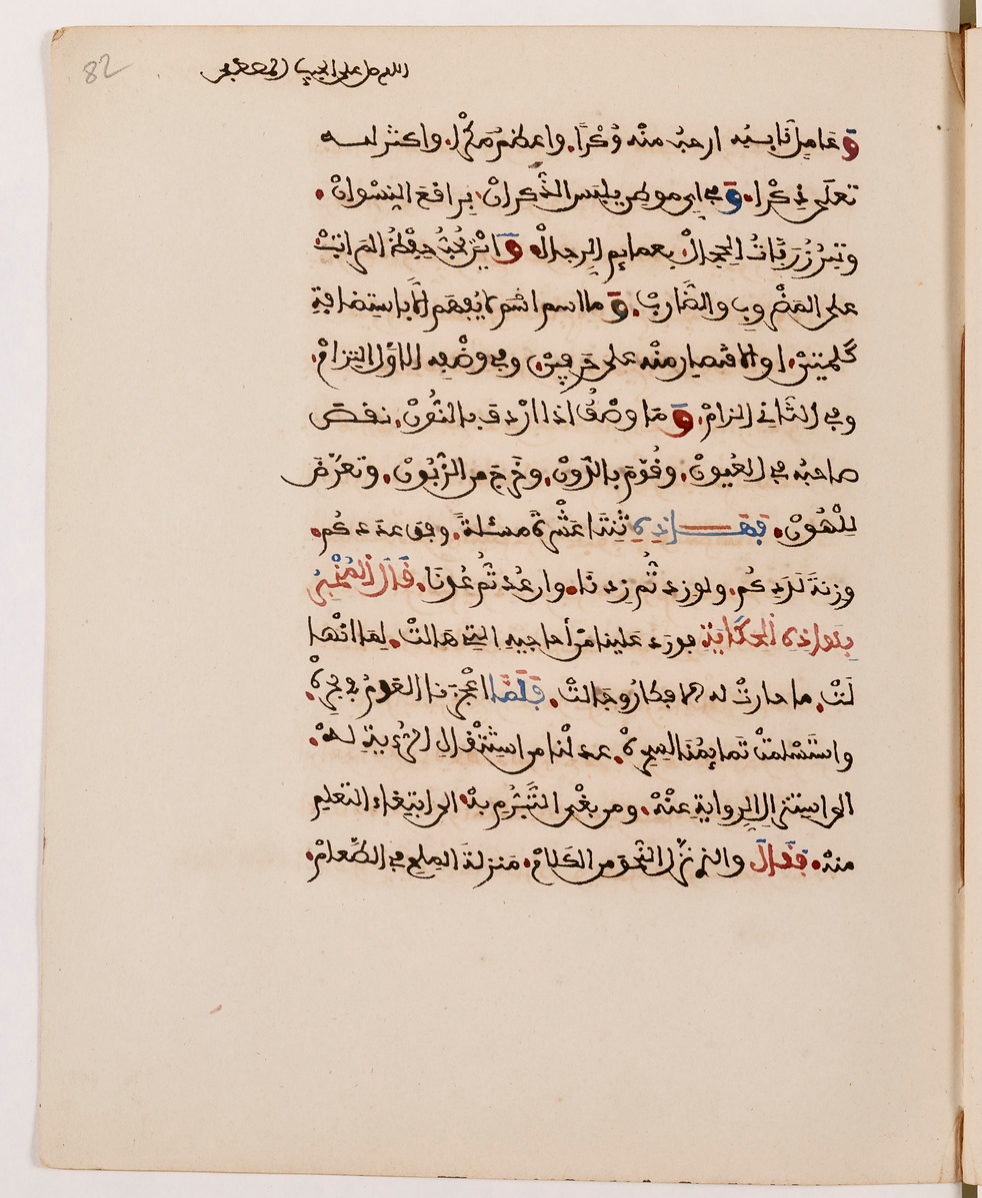 82
اللهم صل على الحبيب المصطفى
وَعَامِل نَايبُه ارحبُ منْه وَكْرًا. واعظمُ مَكْرًا. واكثر لله
تعلى ذِكْرا. وَفي اي موطِن يلبَس الذُّكرانْ. برافعَ النِّسْوانْ.
وتبرُزُ رَبَّاتُ الحِجالْ. بعمايِم الرِجالْ. وَايْن يُحِبُ حِفْظُ المَراتِبْ
على المَضْروبِ والضَّاربْ. وَما اسم اشم لا يُفهَم الا باستِضافةِ
كَلمِتيْن. او الاقتصار منْه على حَرفيْن. وفي وضْعِه الأوَّل التِزامْ.
وفي الثَّاني الزامْ. وَمَا وصْفٌ اذا ارْدفَ بالنُّونْ. نقَصَ
صاحبُه في العُيونْ. وقُوّمَ بالدّونْ. وخَرجَ من الزَّبُونْ. وتعرّضَ
لِلْهُونْ. فهـــذِهِ ثِنتَا عَشْرةَ مسئلةً. وِفقَ عدَدكُم.
وزنَةَ لَدَدِكُم. ولو زدتُم زِدنَا. وان عُدتُّم عُدنَا. قَالَ المُخْبِرُ
بِهذِهِ الحِكَايَةِ فورَد علينا منْ أحاجِيه التِي هَالتْ. لمّا انْهَا
لَتْ. ما حارتْ لهُ الافكارُ وحَالتْ. فلمَّا اعْجزَنا العَومُ في بحرِهْ.
واسْتَسْلمَتْ تَمايِمُنا لسِحرِهْ. عدَلْنا من استِثْقالِ الرُّءيةِ لهْ.
الى استِنزالِ الرِوايةِ عنْهْ. ومن بغْيِ التَّبَرُّمِ بهْ. الى ابتِغاء التعلِيم
منهْ. فقَالَ والذي نزَّلَ النَّحوَ من الكَلامْ. مَنزلةَ المِلحِ في الطّعامْ.